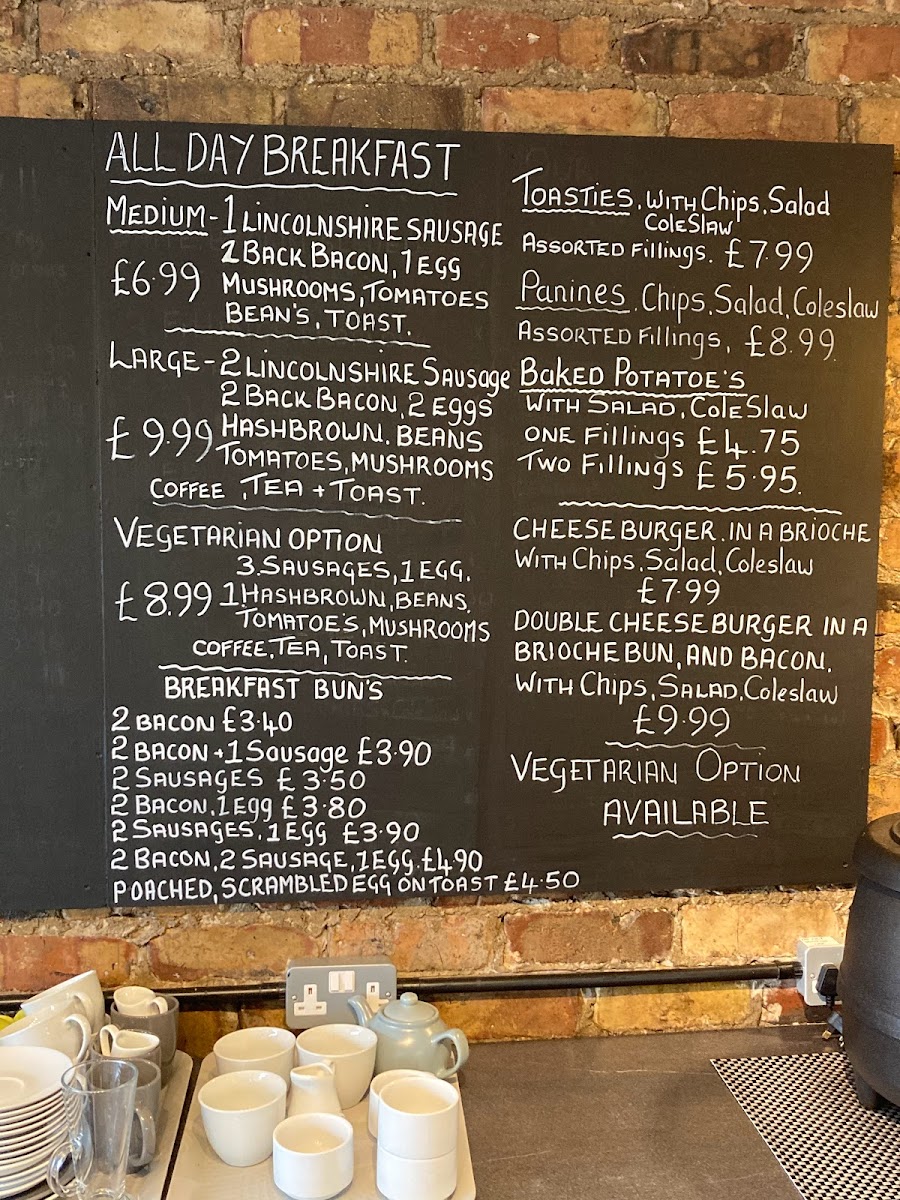 ALL DAY BREAKFAST
MEDIUM - 1 LINCOLNSHIRE SAUSAGE
2 BACK BACON, 1 EGG
£6.99 MUSHROOMS, TOMATOES
BEAN'S, TOAST.
LARGE - 2 LINCOLNSHIRE Sausage
2 BACK BACON, 2 EGGS
£9.99 HASHBROWN. BEANS
TOMATOES, MUSHROOMS
COFFEE, TEA + TOAST.
VEGETARIAN OPTION
3. SAUSAGES, 1 EGG.
£8.99 1 HASHBROWN, BEANS.
TOMATOE'S, MUSHROOMS
COFFEE, TEA, TOAST.
BREAKFAST BUN'S
2 BACON £3.40
2 BACON + 1 Sausage £3.90
2 SAUSAGES £3.50
2 BACON, 1 Egg £3.80
2 SAUSAGES, 1 EGG £3.90
2 BACON, 2 SAUSAGE, 1 EGG. £4.90
POACHED, SCRAMBLED EGG ON TOAST £4.50
TOASTIES. WITH Chips. Salad
COLESLAW
ASSORTED Fillings. £7.99
Panines. Chips, Salad, Coleslaw
ASSORTED Fillings. £8.99.
BAKED POTATOE'S
WITH SALAD, COLESLAW
ONE Fillings £4.75
TWO Fillings £5.95.
CHEESE BURGER. IN A BRIOCHE
WITH Chips, Salad, Coleslaw
£7.99
DOUBLE CHEESE BURGER IN A
BRIOCHE BUN, AND BACON.
WITH Chips, SALAD, Coleslaw
£9.99
VEGETARIAN OPTION
AVAILABLE